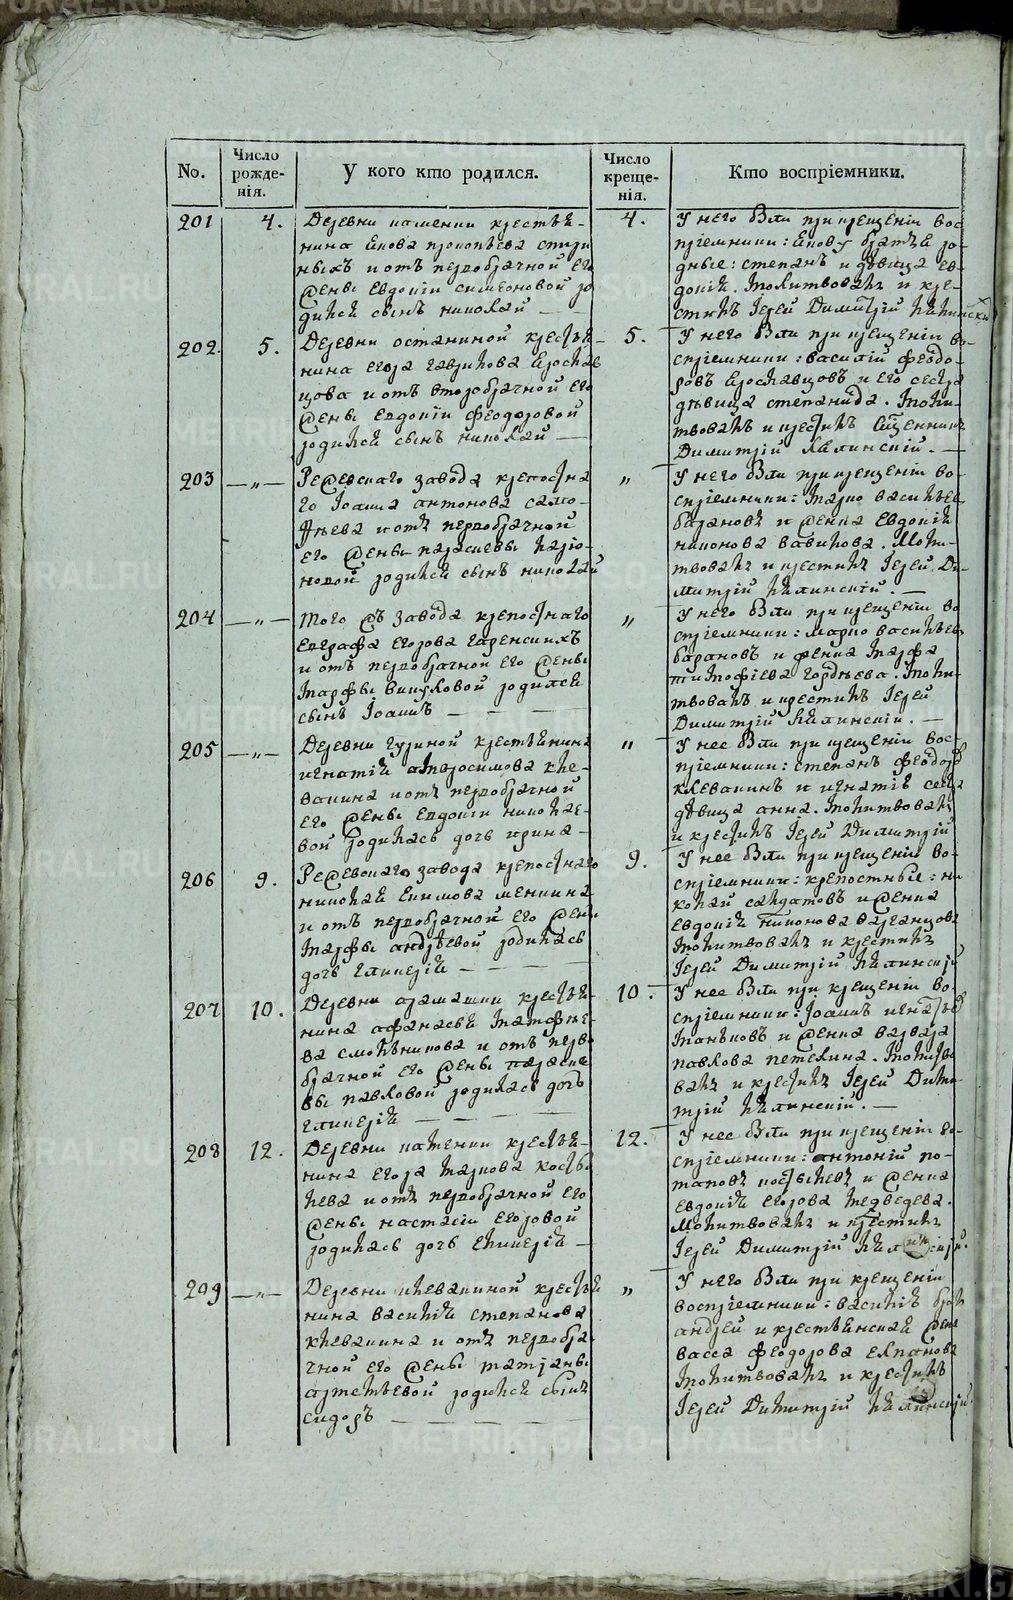 No.
Число рожде-нія.
У кого кто родился.
Число креще-нія.
Кто воспріемники.
201
4.
Деревни каменки крестья-
нина
прокопьева
ныхъ и отъ первобрачной его
жены Евдокіи симеоновой ро
дился сынъ николай
4.
У него были при крещеніи вос
пріемники:
ро-
дные: степанъ и девица ев-
докія. Молитвовалъ и кре-
стилъ Іерей Димитрій Калинский
202.
5.
Деревни останиной крестья-
нина егора гаврилова Ярослав
цова и отъ второбрачной его
жены Евдокіи Феодоровой
родился сынъ николай
5.
У него были при крещеніи во-
спріемники: василій феодо-
ровъ Ярославцовъ и его сестра
девица степанида. Моли-
твовалъ и крестилъ Священникъ
Димитрій Калинскій.
203
— „ —
Режевскаго завода крепостна
го Іоанна антонова
и отъ первобрачной
его жены параскевы
родился сынъ николай
„
У него были при крещеніи во-
спріемники: марко васильев
барановъ и женка Евдокія
никонова вавилова. Моли-
твовалъ и крестилъ Іерей Ди-
митрій Калинскій.
204
— „ —
того жъ завода крепостнаго
Евграфа Егорова
и отъ первобрачной его жены
Марфы
родился
сынъ Іоаннъ
„
У него были при крещеніи во
спріемники: марко васильев
барановъ и женка Марфа
тимофеева гордеева. Моли-
твовалъ и крестилъ Іерей
Димитрій Калинскій.
205
— „ —
Деревни гуриной крестьянина
игнатія амвросимова кле-
вакина и отъ первобрачной
его жены Евдокіи николае-
вой родилась дочь ирина
„
У нее были при крещеніи вос-
пріемники: степанъ феодоро
клевакинъ и игнатія сестра
девица анна. Молитвовалъ
и крестилъ Іерей Димитрій
206
9.
Режевскаго завода крепостнаго
николая Екимова
и отъ первобрачной его жены
Марфы андреевой родилась
дочь гликерія
9.
У нее были при крещеніи во-
спріемники: крепостные: ни
колай
и женка
Евдокія никонова
Молитвовалъ и крестилъ
Іерей Димитрій Калинскій
207
10.
Деревни арамашки крестья-
нина афанасья
ва
и отъ перво
брачной его жены параске
вы павловой родилась дочь
гликерія
10.
У нее были при крещеніи во-
спріемники: Іоаннъ игнатьев
и женка варвара
павлова
Молитво
валъ и крестилъ Іерей Дими-
трій Калинскій.
208
12.
Деревни каменки крестья-
нина Егора маркова косты
лева и отъ первобрачной его
жены настасіи Егоровой
родилась дочь гликерія
12.
У нее были при крещеніи во-
спріемники: антоній по-
таповъ костылевъ и женка
евдокія егорова медведева.
Молитвовалъ и крестилъ
Іерей Димитрій Калинскій.
209
— „ —
Деревни клевакиной крестья
нина василія степанова
клевакина и отъ первобра-
чной его жены татьяны
артемьевой родился сынъ
сидоръ
„
У него были при крещеніи
воспріемники: василія братъ
андрей и крестьянская женк
васса феодорова
Молитвовалъ и крестилъ
Іерей Димитрій Калинскій.
METRIKI.GASO-URAL.RU